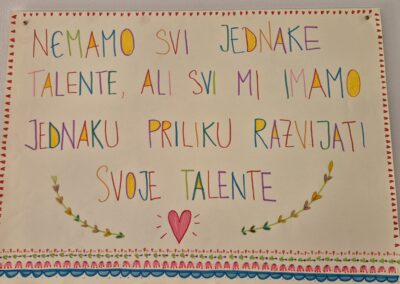 NEMAMO SVI JEDNAKE
TALENTE, ALI SVI MI IMAMO
JEDNAKU PRILIKU RAZVIJATI
SVOJE TALENTE